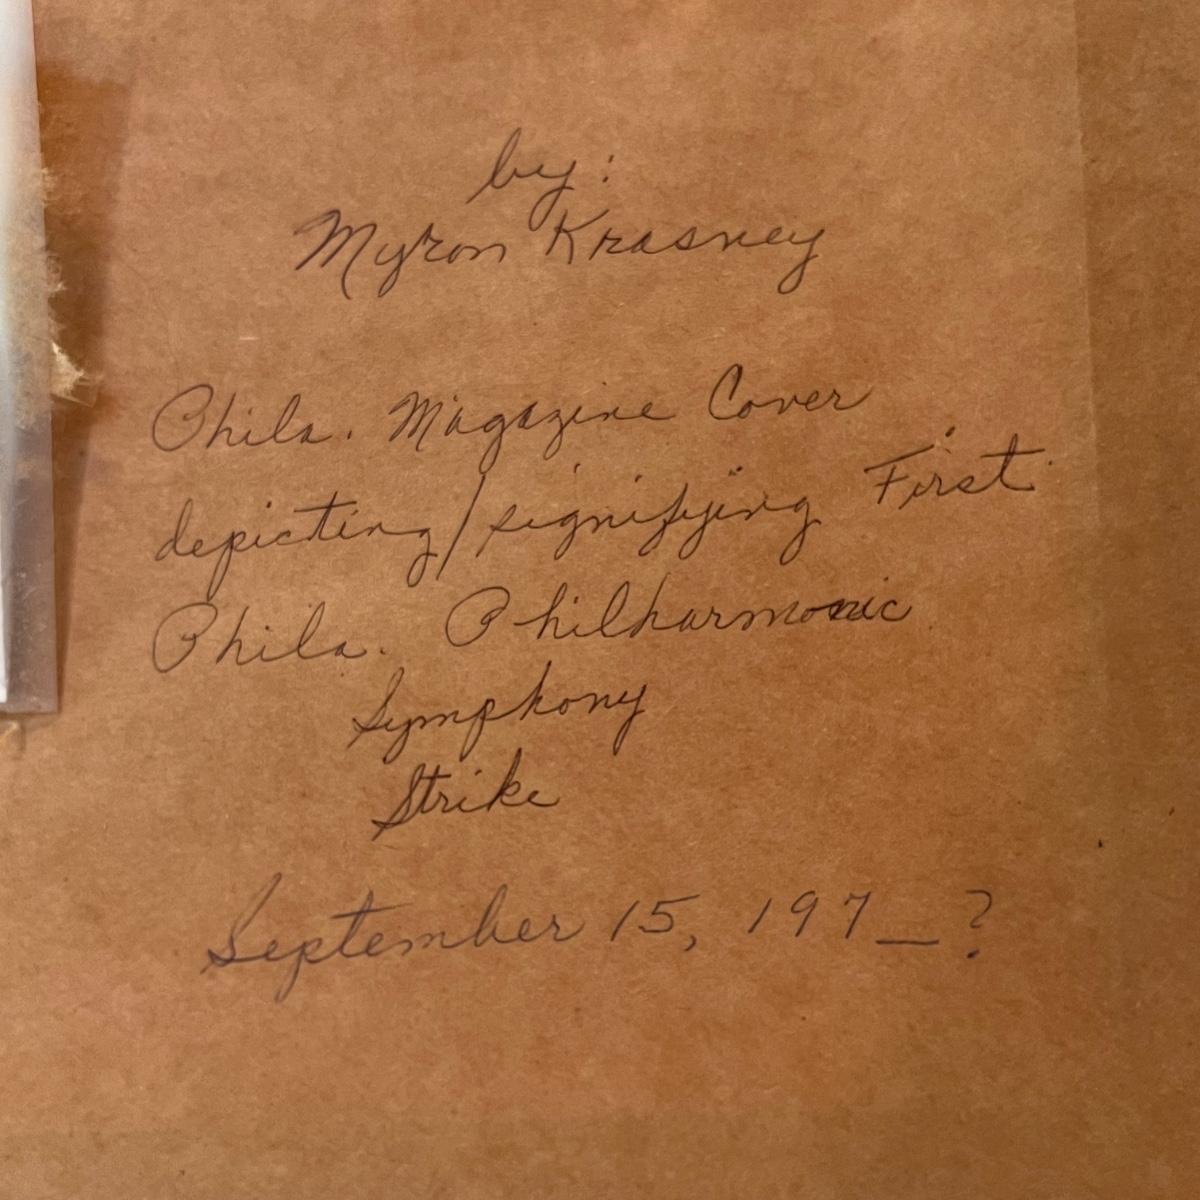 by:
Myron Krasney
Phila. Magazine Cover
depicting/signifying First
Phila. Philharmonic
Symphony
Strike
September 15, 197_?